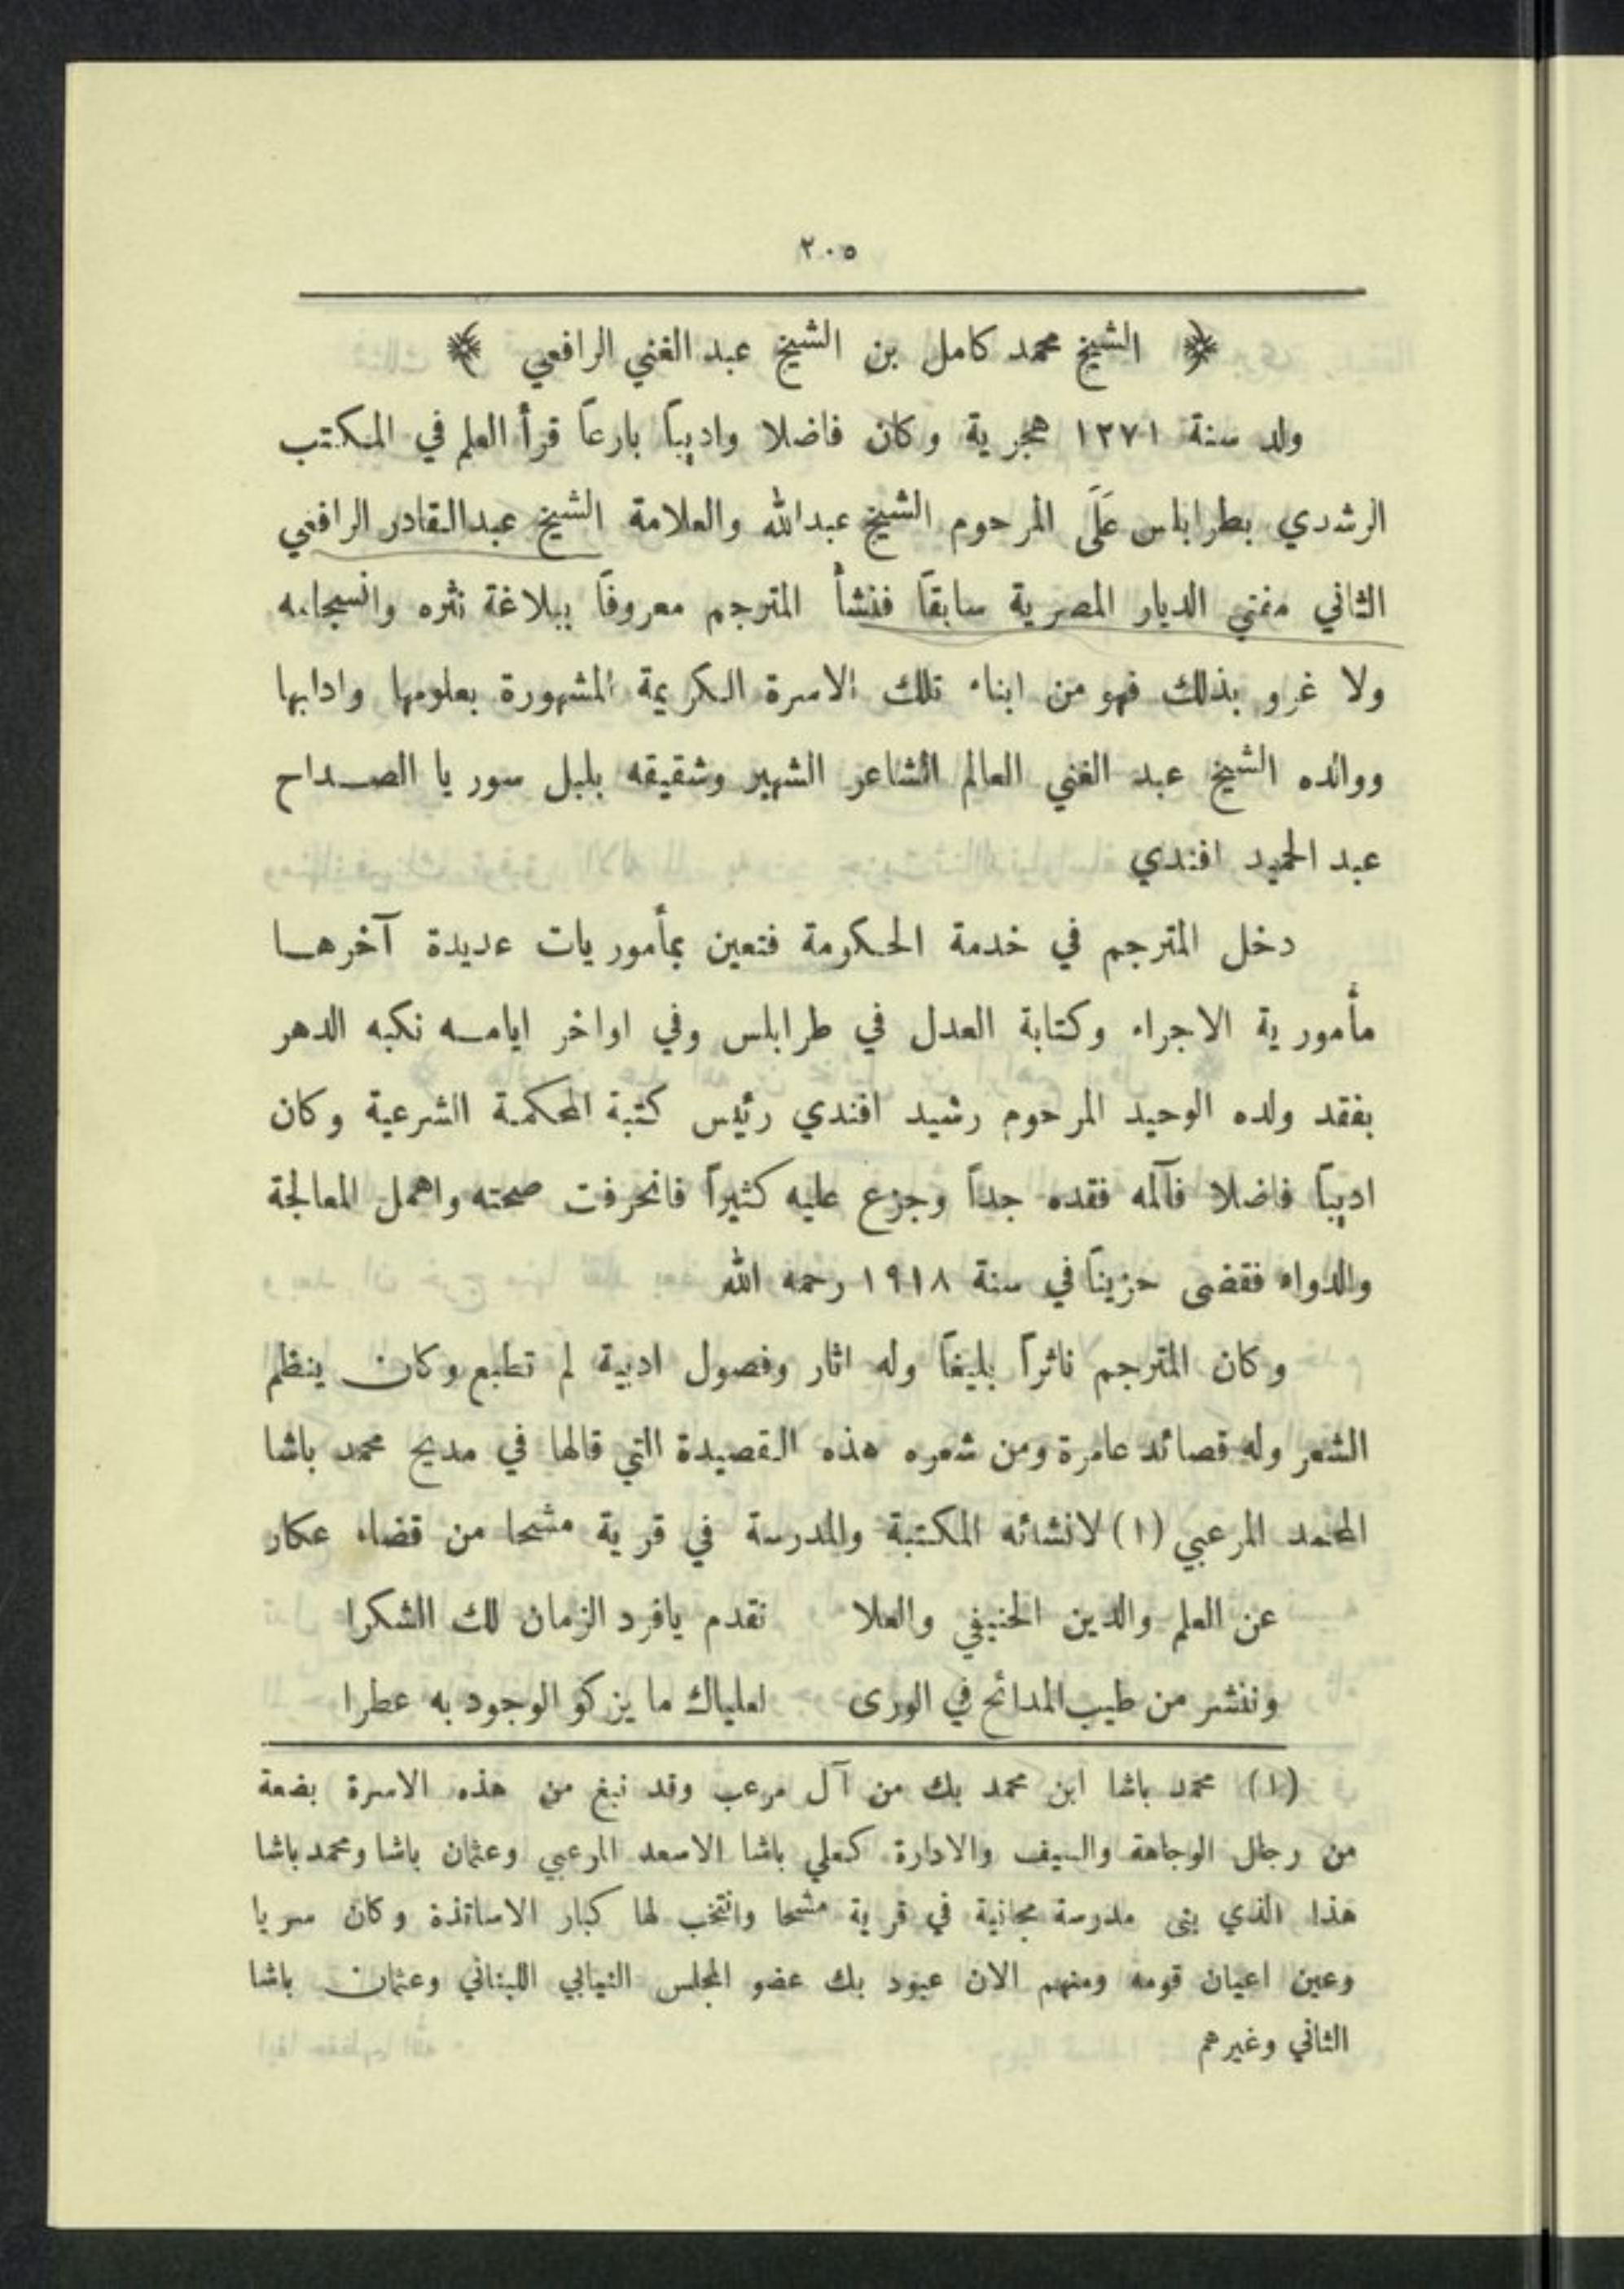 ٢٠٥
﴿ الشيخ محمد كامل بن الشيخ عبد الغني الرافعي ﴾
ولد سنة ١٢٧١ هجرية وكان فاضلا واديباً بارعاً قرأ العلم في المكتب
الرشدي بطرابلس عَلَى المرحوم الشيخ عبدالله والعلامة الشيخ عبدالقادر الرافعي
الثاني مفتي الديار المصرية سابقاً فنشأ المترجم معروفاً ببلاغة نثره وانسجامه
ولا غرو بذلك فهو من ابناء تلك الاسرة الكريمة المشهورة بعلومها وادابها
ووالده الشيخ عبد الغني العالم الشاعر الشهير وشقيقه بلبل سوريا الصداح
عبد الحميد افندي
دخل المترجم في خدمة الحكومة فتعين بمأموريات عديدة آخرها
مأمورية الاجراء وكتابة العدل في طرابلس وفي اواخر ايامه نكبه الدهر
بفقد ولده الوحيد المرحوم رشيد افندي رئيس كتبة المحكمة الشرعية وكان
اديباً فاضلا فآلمه فقده جداً وجزع عليه كثيراً فانحرفت صحته واهمل المعالجة
والدواء فقضى حزيناً في سنة ١٩١٨ رحمه الله
وكان المترجم ناثراً بليغاً وله اثار وفصول ادبية لم تطبع وكان ينظم
الشعر وله قصائد عامرة ومن شعره هذه القصيدة التي قالها في مديح محمد باشا
المحمد المرعبي (١) لانشائه المكتبة والمدرسة في قرية مشحا من قضاء عكار
عن العلم والدين الحنيفي والعلا نقدم يافرد الزمان لك الشكرا
وننشر من طيب المدائح في الورى لعلياك ما يزكو الوجود به عطرا
(١) محمد باشا ابن محمد بك من آل مرعب وقد نبغ من هذه الاسرة بضعة
من رجال الوجاهة والسيف والادارة كعلي باشا الاسعد المرعبي وعثمان باشا ومحمد باشا
هذا الذي بنى مدرسة مجانية في قرية مشحا وانتخب لها كبار الاساتذة وكان سريا
وعين اعيان قومه ومنهم الان عبود بك عضو المجلس النيابي اللبناني وعثمان باشا
الثاني وغيرهم